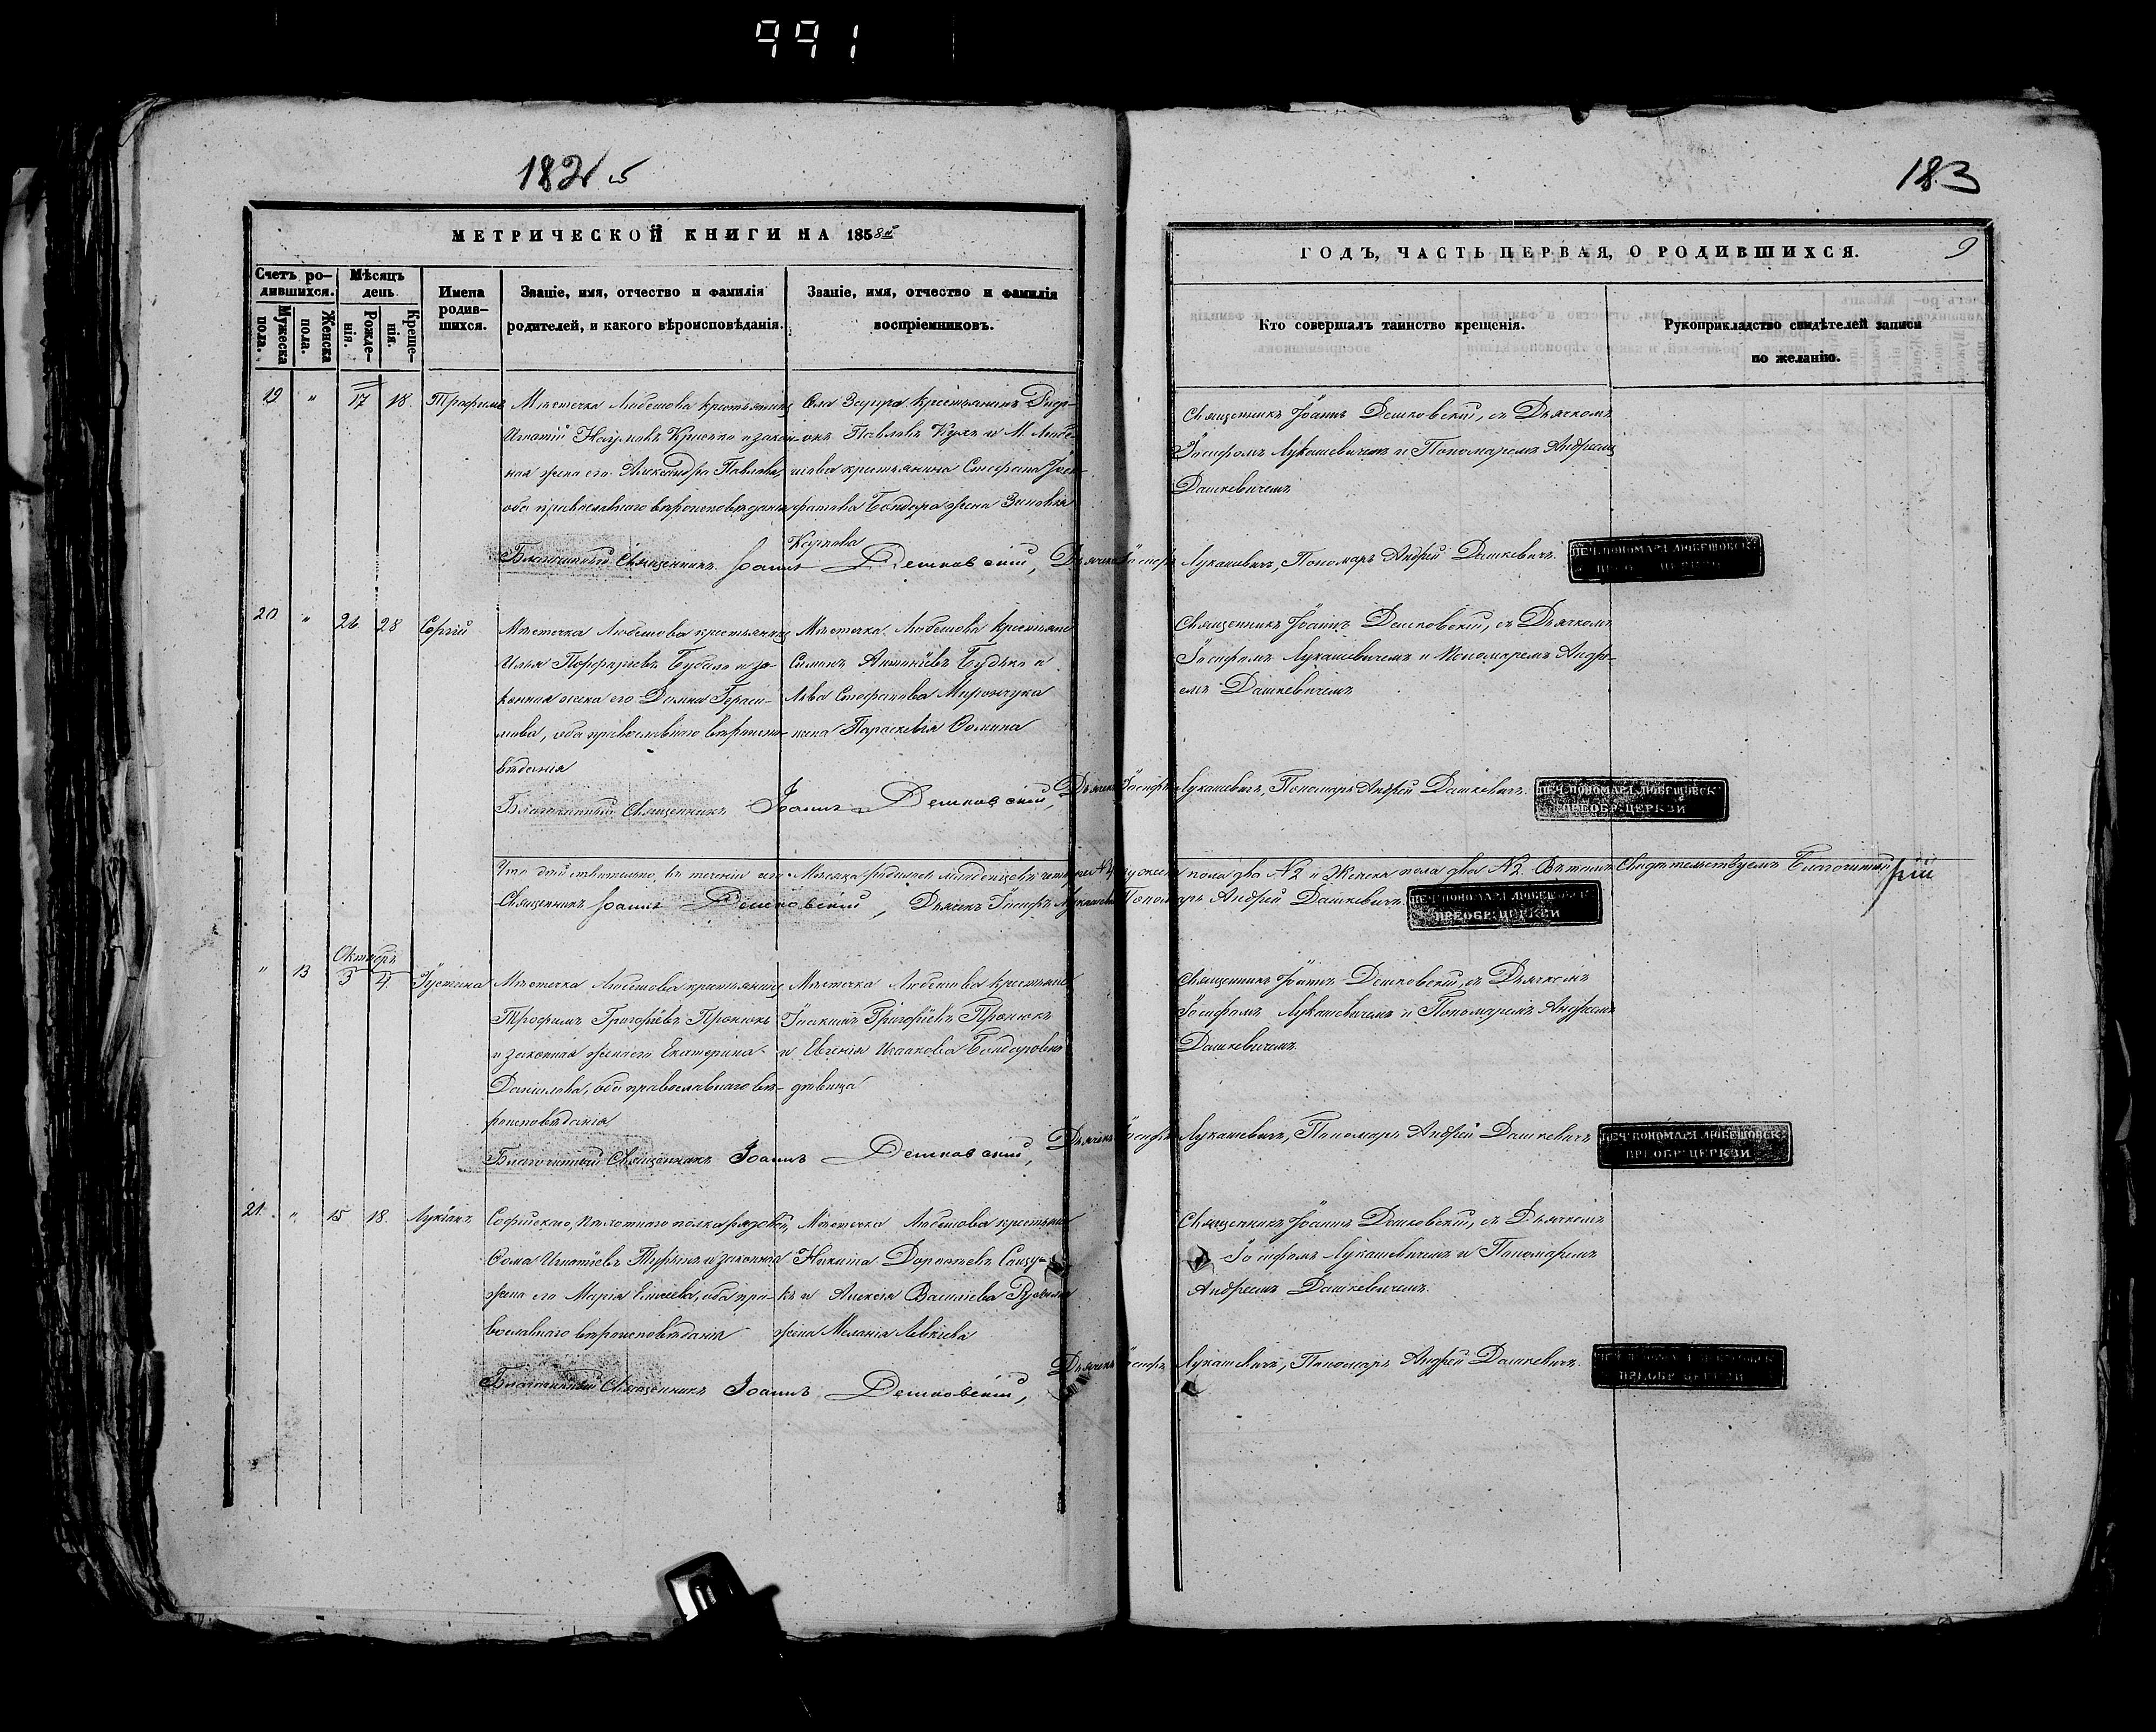 991
182 об
183
МЕТРИЧЕСКОЙ КНИГИ НА 1858й
ГОДЪ, ЧАСТЬ ПЕРВАЯ, О РОДИВШИХСЯ.
9
Счетъ родившихся.
Мужеска пола.
Женска пола.
Мѣсяцъ день
Рожденія.
Крещенія.
Имена родившихся.
Званіе, имя, отчество и фамилія
родителей, и какого вѣроисповѣданія.
Званіе, имя, отчество и фамилія
воспріемниковъ.
Кто совершалъ таинство крещенія.
Рукоприкладство свидѣтелей записи
по желанію.
19 " 17 18. Трофимъ
Мѣстечка Любешова крестьянинъ
Игнатій Наумовъ и закон-
ная жена его Александра Павлова,
оба православнаго вѣроисповѣданія
Крестьянинъ
Павловъ Кухъ и М. Любе-
шова крестьянина Стефана
Бондара жена Зиновія
Карпова
Священникъ Іоаннъ Дешковскій, съ Дьячкомъ
Іосифомъ Лукашевичемъ и Пономаремъ Андреемъ
Дашкевичемъ
Благочинный Священникъ Іоаннъ Дешковскій, Дьячекъ Іосифъ Лукашевичъ, Пономарь Андрей Дашкевичъ.
ПЕЧ. ПОНОМАРЯ ЛЮБЕШОВСК:
20 " 26 28 Сергій
Мѣстечка Любешова крестьянинъ
Илья Порфирьевъ и за-
конная жена его Домна Гераси-
мова, оба православнаго вѣроиспо-
вѣданія
Мѣстечка Любешова крестьяне
Симонъ Антоніевъ Будько и
Льва Стефанова Мирончука
жена Параскевія Фомина
Священникъ Іоаннъ Дешковскій, съ Дьячкомъ
Іосифомъ Лукашевичемъ и Пономаремъ Андре-
емъ Дашкевичемъ
Благочинный Священникъ Іоаннъ Дешковскій, Дьячекъ Іосифъ Лукашевичъ, Пономарь Андрей Дашкевичъ.
ПЕЧ. ПОНОМАРЯ ЛЮБЕШОВСК:
ПРЕОБР: ЦЕРКВИ
Что дѣйствительно въ теченіи сего Мѣсяца родилось младенцевъ четыре №4 мужеска пола два №2 и Женска пола два №2. Въ томъ Свидѣтельствуемъ Благочинный
Священникъ Іоаннъ Дешковскій, Дьячекъ Іосифъ Лукашевичъ Пономарь Андрей Дашкевичъ.
ПЕЧ. ПОНОМАРЯ ЛЮБЕШОВСК:
ПРЕОБР: ЦЕРКВИ
Октябрь
" 13 3 4 Іустина
Мѣстечка Любешова крестьянинъ
Трофимъ Григоріевъ Пронюкъ
и законная жена его Екатерина
Данилова, оба православнаго вѣ-
роисповѣданія
Мѣстечка Любешова крестьяне
Іоакимъ Григоріевъ Пронюкъ
и Евгенія Исаакова Бондаровна
дѣвица
Священникъ Іоаннъ Дешковскій, съ Дьячкомъ
Іосифомъ Лукашевичемъ и Пономаремъ Андреемъ
Дашкевичемъ.
Благочинный Священникъ Іоаннъ Дешковскій, Дьячекъ Іосифъ Лукашевичъ, Пономарь Андрей Дашкевичъ
ПЕЧ. ПОНОМАРЯ ЛЮБЕШОВСК:
ПРЕОБР: ЦЕРКВИ
21. " 15 18. Лукіанъ.
Софійскаго, Пѣхотнаго полка рядовой,
Фома Игнатіевъ и законная
жена его Марія Елисеева, оба пра-
вославнаго вѣроисповѣданія
Мѣстечка Любешова крестьяне
Никита Доротеевъ
и Алексія Василіева
жена Меланія Левкіева
Священникъ Іоаннъ Дешковскій, съ Дьячкомъ
Іосифомъ Лукашевичемъ и Пономаремъ
Андреемъ Дашкевичемъ.
Благочинный Священникъ Іоаннъ Дешковскій, Дьячекъ Іосифъ Лукашевичъ, Пономарь Андрей Дашкевичъ.
ПРЕОБР: ЦЕРКВИ